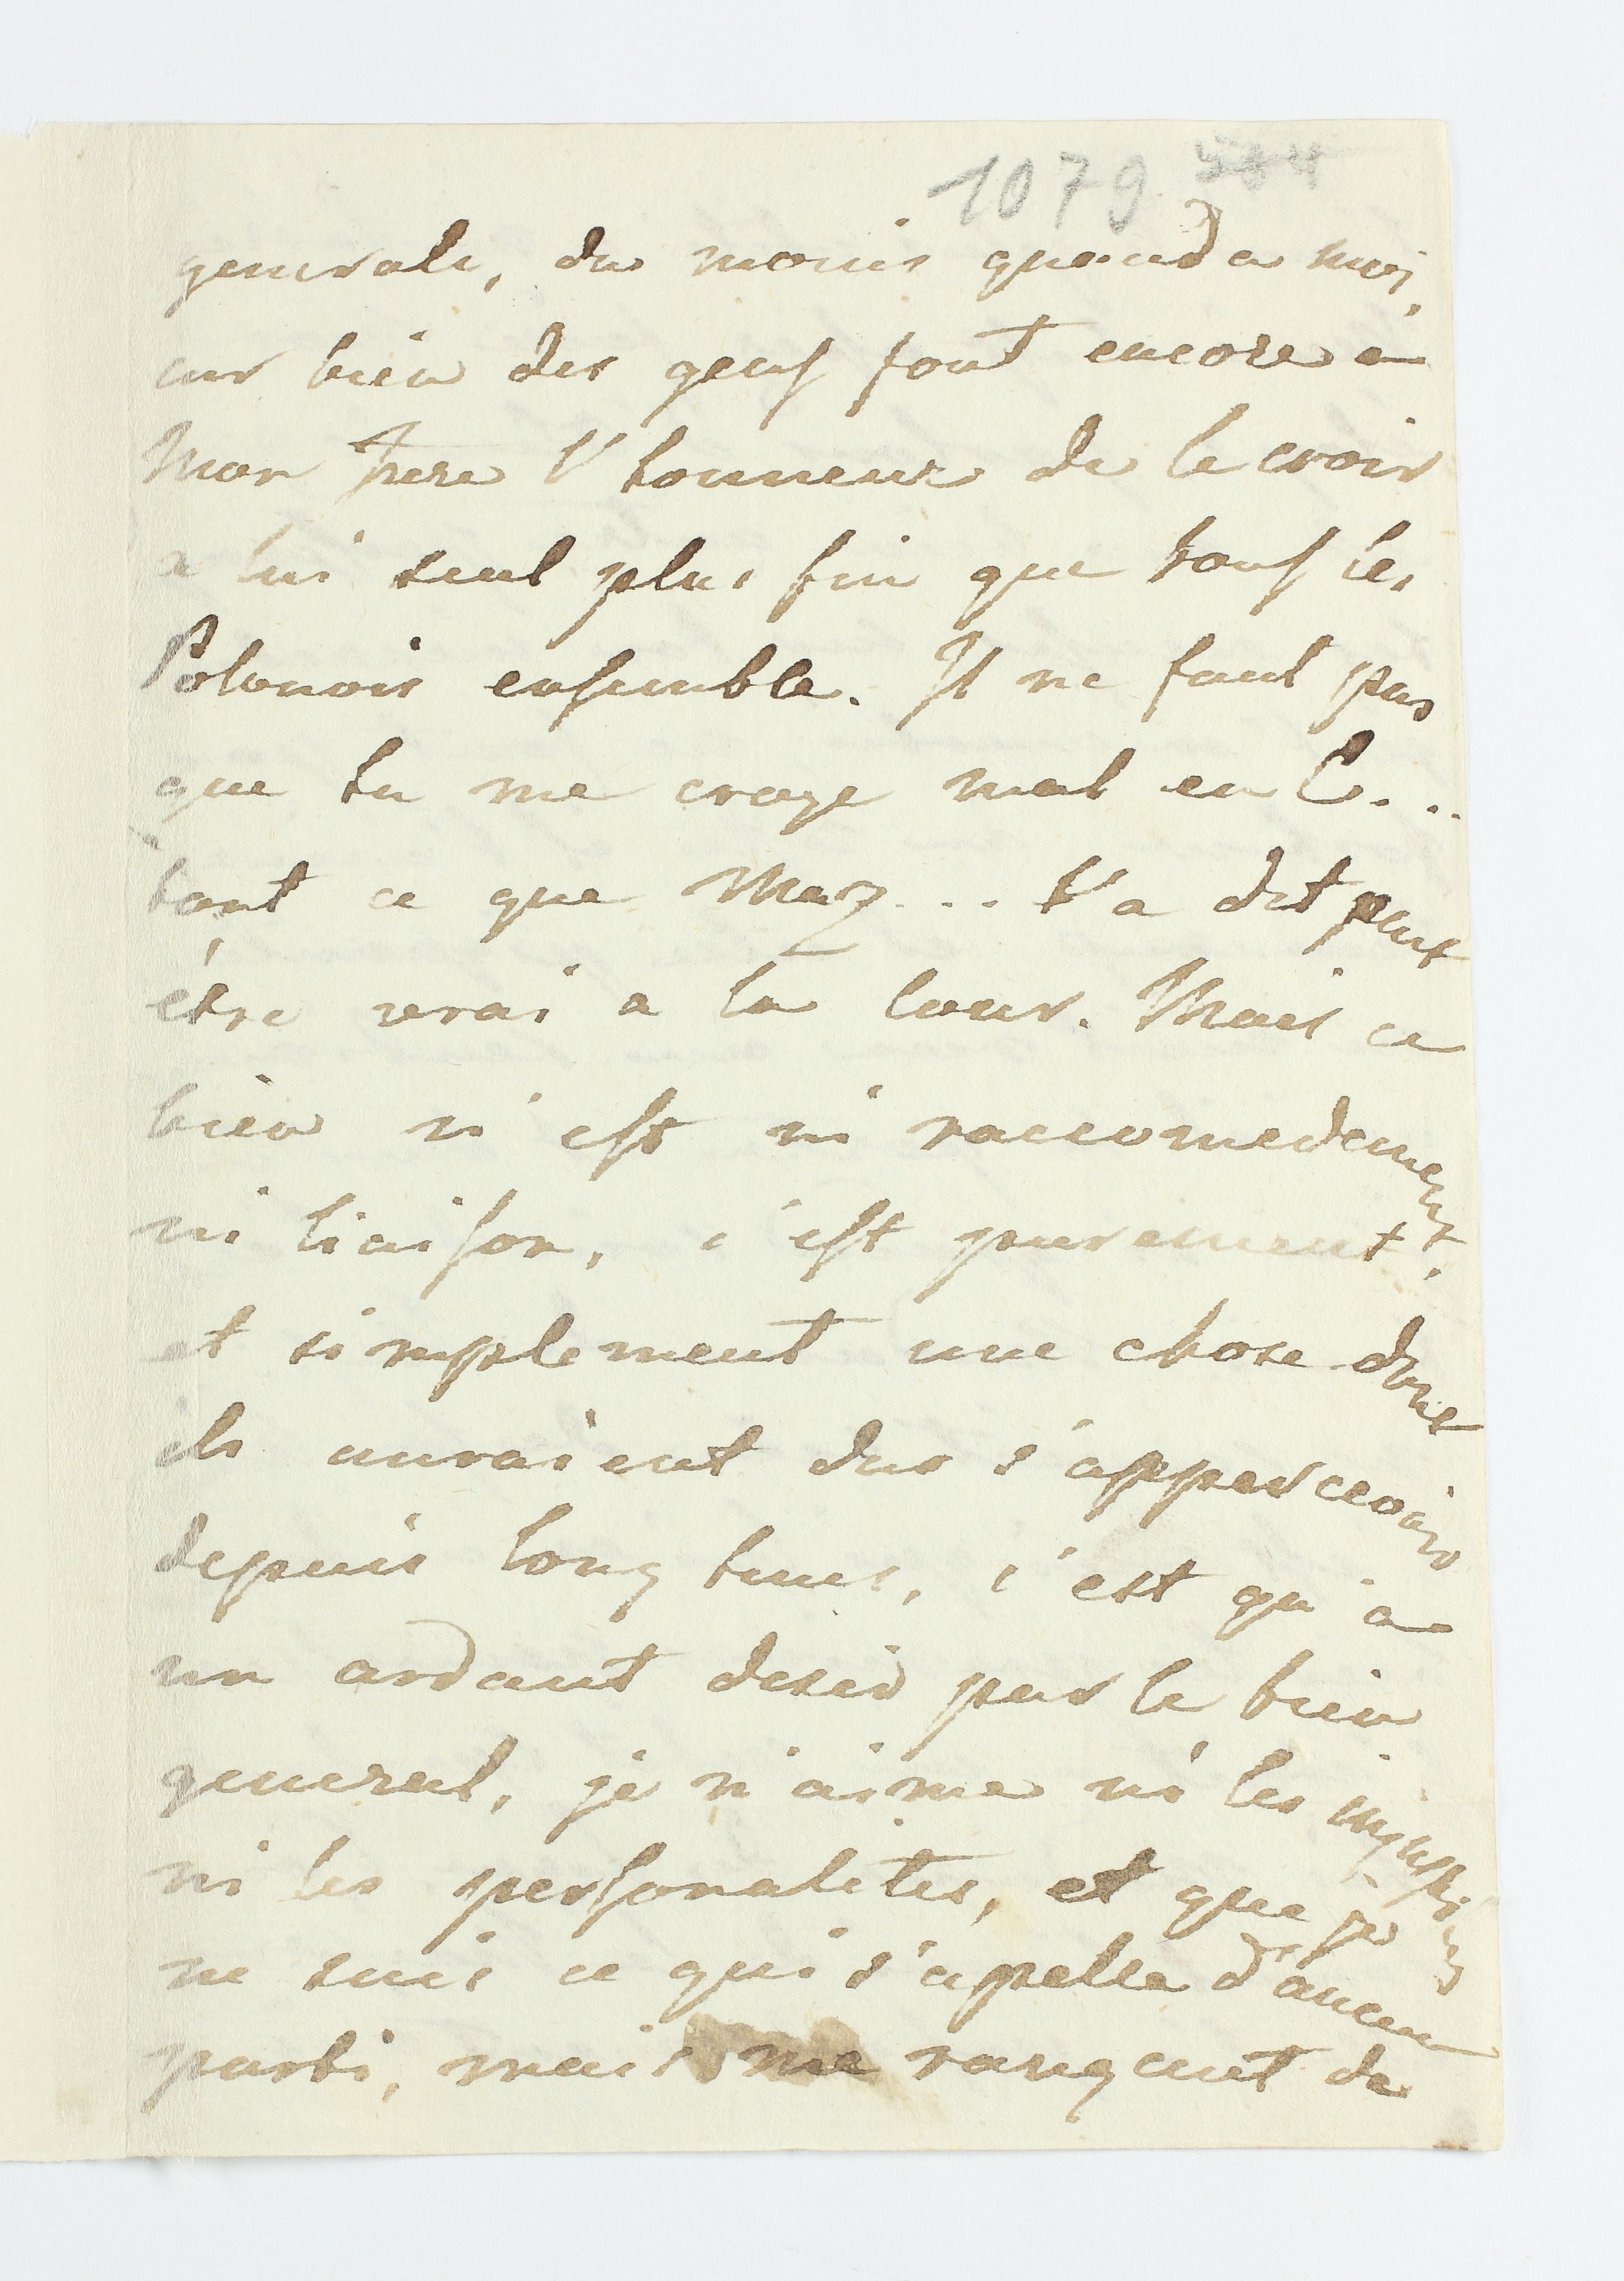 1079
generale, du moins quand a moi,
car bien des gens font encore a
Mon frere l'honneur de le croir
a lui seul plus fin que tous les
Polonois ensemble. Il ne faut pas
que tu me croye mal en C...
tout ce que Maz... t'a dit peut
étre vrai a la cour. Mais ce
bien n'est ni raccomedement,
ni liaison, c'est purement
et simplement une chose dont
ils auraient du s'appercevoir
depuis long tems, c'est qu'a
un ardant desir par le bien
general, je n'aime ni les injustices
ni les personalites, et que je
ne suis ce qui s'apelle d'aucun
parti, mais me rangeant de